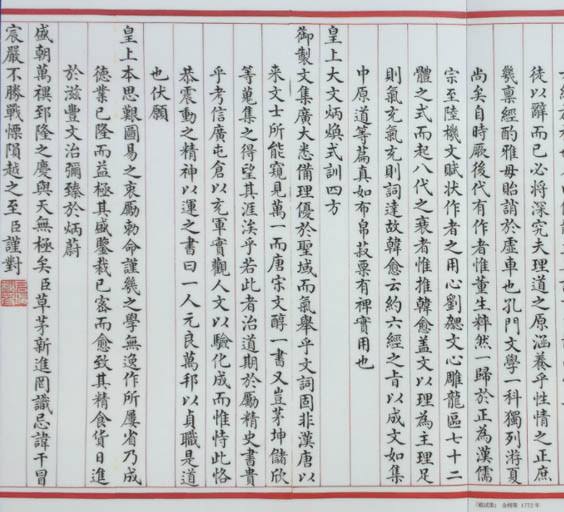 徒以辭而已必將深究夫理道之原涵養乎性情之正庶
幾稟經酌雅毋貽誚於虛車也孔門文學一科獨列游夏
尚矣自時厥後代有作者惟董生粹然一歸於正為漢儒
宗至陸機文賦狀作者之用心劉勰文心雕龍區七十二
體之式而起八代之衰者惟推韓愈蓋文以理為主理足
則氣充氣充則詞達故韓愈云約六經之旨以成文如集
中原道等篇真如布帛菽粟有裨實用也
皇上大文炳煥式訓四方
御製文集廣大悉備理優於聖域而氣舉乎文詞固非漢唐以
來文士所能窺見萬一而唐宋文醇一書又豈茅坤儲欣
等蒐集之得望其涯涘乎若此者治道期於勵精史書貴
乎考信廣屯倉以充軍實觀人文以驗化成而惟恃此恪
恭震動之精神以運之書曰一人元良萬邦以貞職是道
也伏願
皇上本思艱圖易之衷勵勑命謹幾之學無逸作所屢省乃成
德業已隆而益極其盛鑒裁已審而愈致其精食貨日進
於滋豐文治彌臻於炳蔚
盛朝萬禩郅隆之慶與天無極矣臣草茅新進罔識忌諱干冒
宸嚴不勝戰慄隕越之至臣謹對
1772年